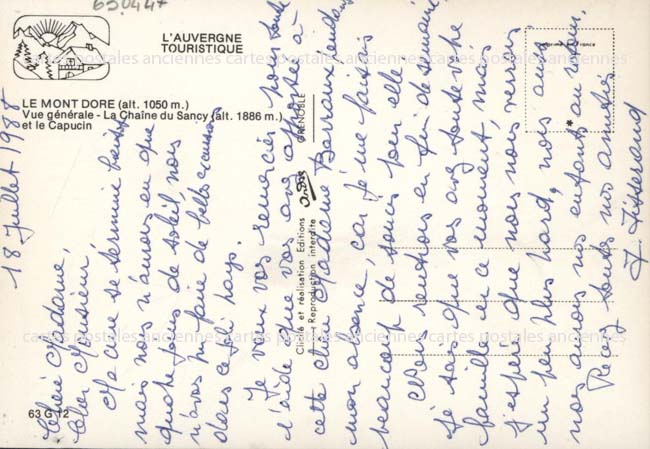 650447
L'AUVERGNE
TOURISTIQUE
LE MONT DORE (alt. 1050 m.)
Vue générale - La Chaîne du Sancy (alt. 1886 m.)
et le Capucin
63 G 12
Cliché et réalisation Editions André GRENOBLE
Reproduction interdite
cartes postales anciennes cartes postales anciennes cartes postales anciennes
cartes postales anciennes cartes postales anciennes cartes postales anciennes
18 Juillet 1988
Chère Madame,
Cher Monsieur,
Ma cure se termine
mais nous n'avons eu que
quatre jours de soleil, nous
n'avons pu faire de belles excursions
dans ce joli pays.
Je veux vous remercier pour toute
l'aide que vous avez apportée à
cette chère Madame Berraux pendant
mon absence, car je me faisais
beaucoup de soucis pour elle.
Nous rentrons en fin de semaine
Je sais que vous avez toute votre
famille en ce moment, mais
J'espère que nous nous verrons
un peu plus tard, nous aussi
nous aurons nos enfants au retour.
Recevez toutes nos amitiés
J. Tisserand